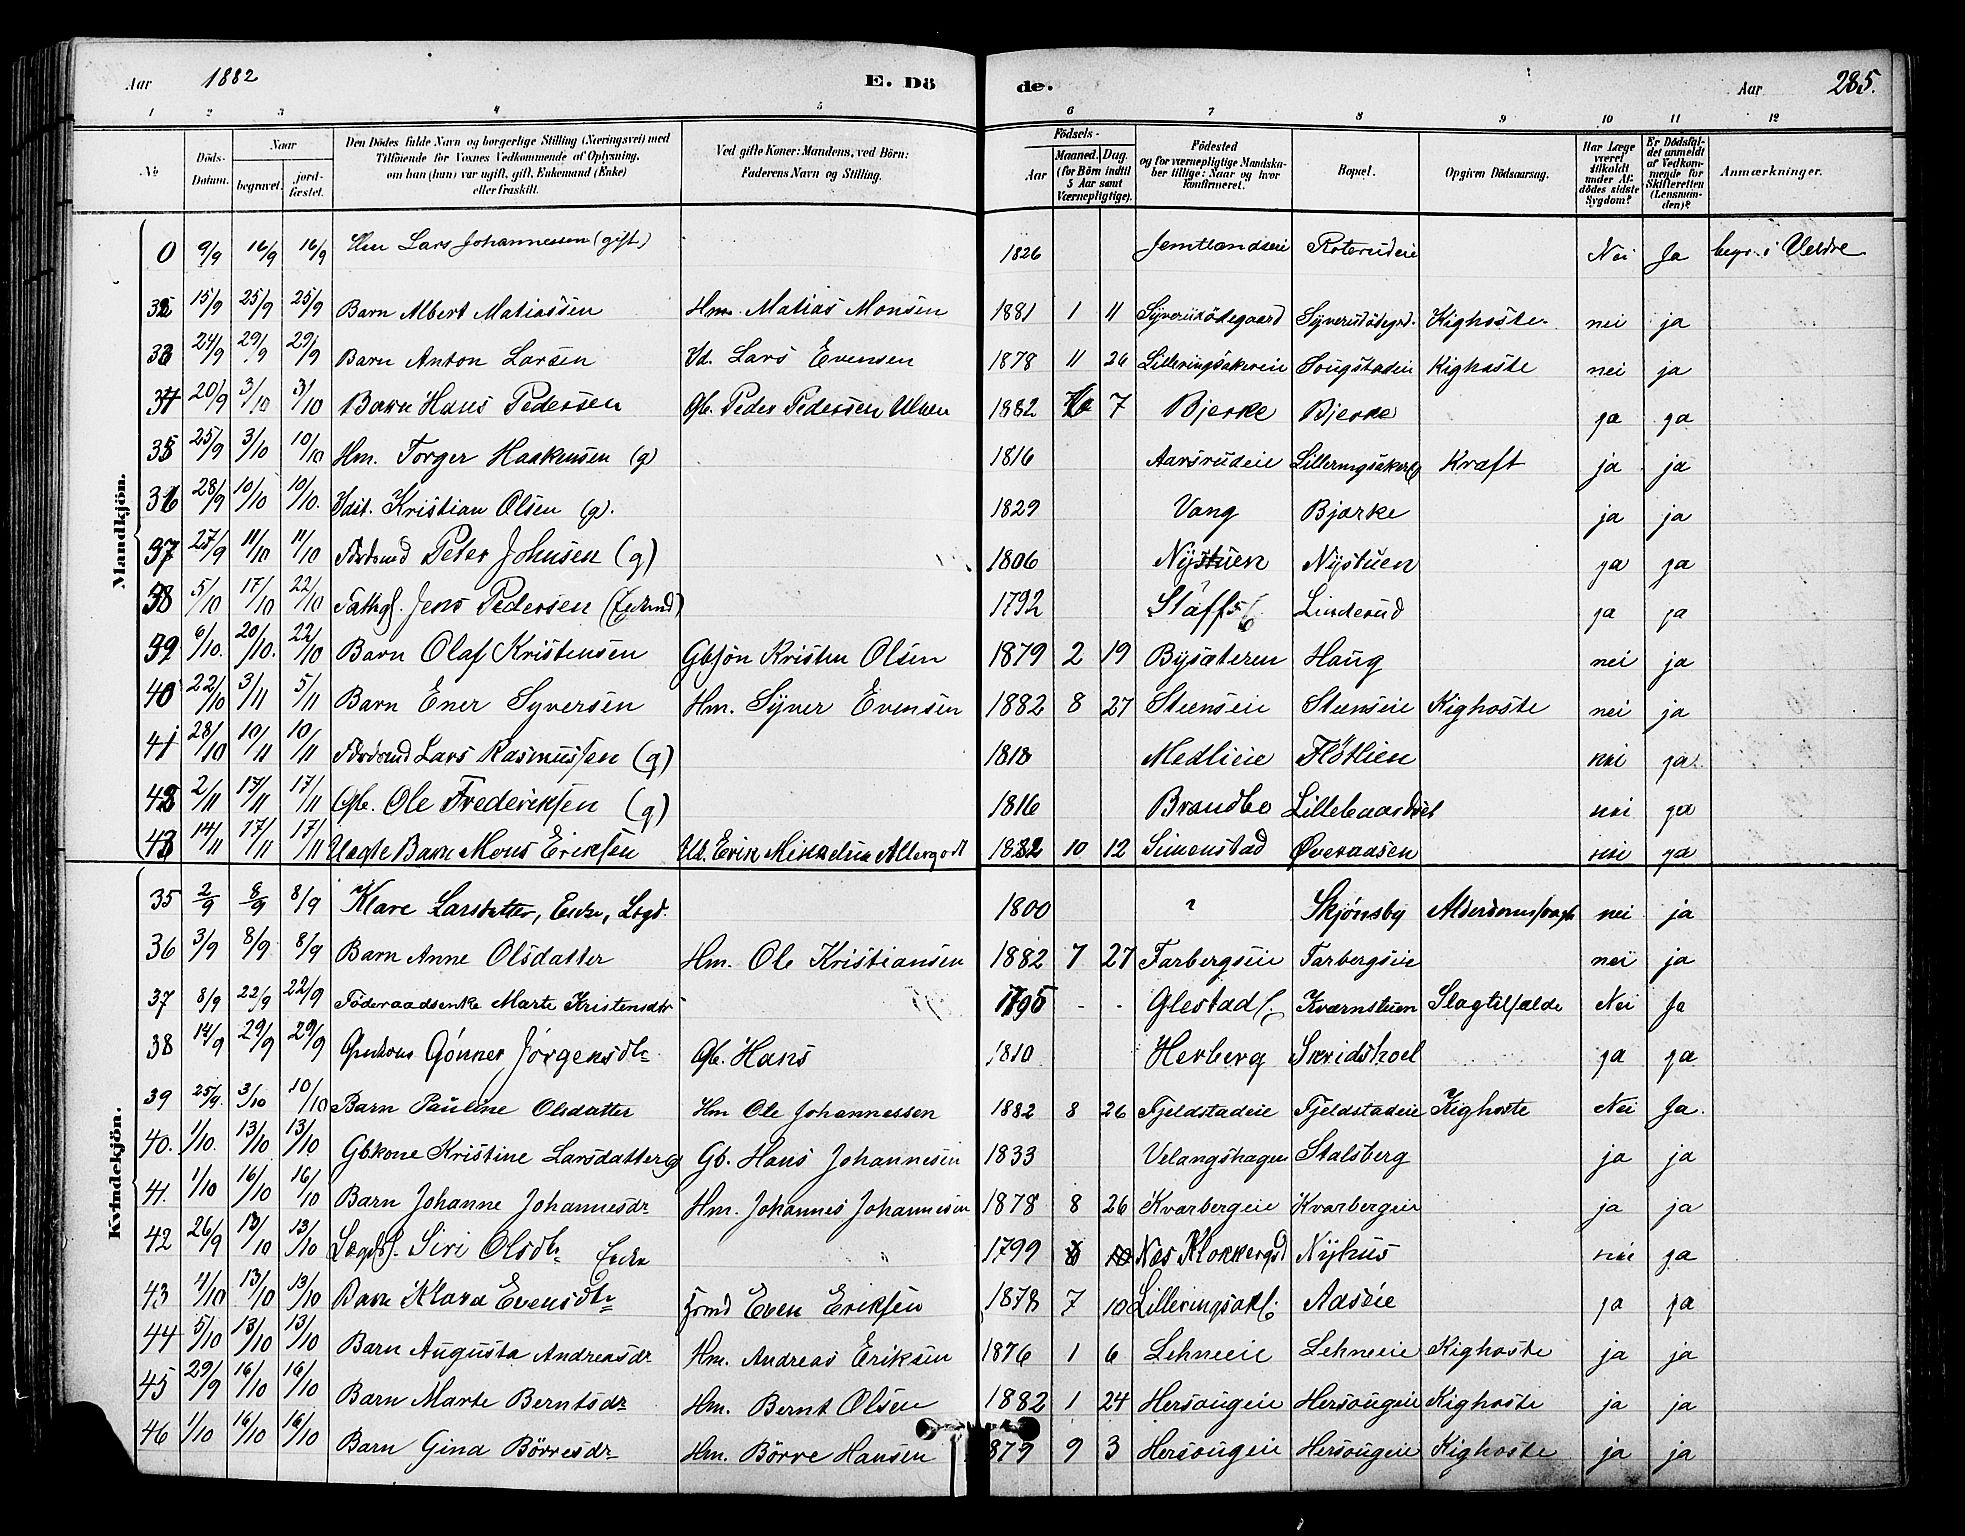 Aar 1882 E. Dö de. Aar 285.
1 2 3 4 5 6 7 8 9 10 11 12
No Döds-Datum. Naar begravet. jord-fæstet. Den Dödes fulde Navn og borgerlige Stilling (Næringsvei) med Tilföiende for Voxnes Vedkommende af Oplysning, om han (hun) var ugift, gift, Enkemand (Enke) eller fraskilt. Ved gifte Koner: Mandens, ved Börn: Faderens Navn og Stilling. Födsels- Aar Maaned. Dag. (for Börn indtil 5 Aar samt Værnepligtige). Födested og for værnepligtige Mandska-ber tillige: Naar og hvor konfirmeret. Bopæl. Opgiven Dödsaarsag. Har Læge været tilkaldt under Af-dödes sidste Sygdom? Er Dödsfal-det anmeldt af Vedkom-mende for Skifteretten (Lensman-den)? Anmærkninger.
Mandkjön.
0 9/9 16/9 16/9 Hm Lars Johannessen (gift) 1826 Jemtlandseie Roterudeie Nei Ja begr. i Veldre
32 15/9 25/9 25/9 Barn Albert Matiassen Hm. Matias Monsen 1881 1 11 Syverudødegaard Syverudødegrd. Kighoste. nei ja
33 24/9 29/9 29/9 Barn Anton Larsen Id. Lars Evensen 1878 11 26 Lilleringsakereie Kighoste nei ja
34 20/9 3/10 3/10 Barn Hans Pedersen Gb. Peder Pedersen 1882 7 Bjerke Bjerke ja ja
35 25/9 3/10 10/10 Hm. Torger Haakensen (g) 1816 Aarsrudeie Kræft ja ja
36 28/9 10/10 10/10. Kristian Olsen (g). 1829 Vang Bjærke ja ja
37 27/9 11/10 11/10 Peter Johnsen (g) 1806 Nystuen Nystuen ja ja
38 5/10 17/10 22/10 Jens Pedersen 1792 Linderud ja ja
39 6/10. 20/10. 22/10 Barn Olaf Kristensen Gbsön Kristen Olsen 1879 2 19 Bysæteren Haug nei ja
40 22/10 3/11 5/11 Barn Ener Syversen Hm. Syver Evensen 1882 8 27 Steenseie Steenseie Kighoste nei ja
41 28/10 10/11 10/11 Lars Rasmussen (g) 1818 Medlieie Fløtlien nei ja.
42 2/11 17/11 17/11 Gb. Ole Frederiksen (g) 1816 Brandbo nei ja
43 14/11 17/11 17/11 Uægte Barn Mons Eriksen 1882 10 12 Simenstad Øveraasen nei ja
Kvindekjön.
35 2/9 8/9 8/9 Klare Larsdatter, Enke, Lægd. 1800 ? Skjønsby nei ja
36 3/9 8/9 8/9 Barn Anne Olsdatter Hm. Ole Kristiansen 1882 7 27 Farbergseie Farbergseie nei ja
37 8/9 22/9 22/9 Föderaadsenke Marte Kristensdtr 1795 - - Glestad Kværnstuen Slagtilfælde Nei Ja
38 14/9 29/9 29/9 Gønner Jørgensdtr Gb. Hans 1810 Herberg Skridshoel ja ja
39 25/9. 3/10 10/10 Barn Pauline Olsdatter Hm Ole Johannessen 1882 8 26 Fjeldstadeie Fjeldstadeie Kighoste Nei Ja.
40. 1/10. 13/10 13/10 Gbkone Kristine Larsdatter (g) Gb. Hans Johannesen 1833 Velangshagen Stalsberg ja ja
41. 1/10 16/10 16/10 Barn Johanne Johannesdr Hm. Johannes Johannesen 1878 8 26 Kvarbergeie Kvarbergeie ja ja
42 26/9 13/10 13/10 Siri Olsdtr Enke 1799 Næs Nyhus nei ja
43 4/10 13/10 13/10 Barn Klara Evensdtr Even Eriksen 1878 7 10 Aaseie ja ja
44 5/10 13/10 13/10 Barn Augusta Andreasdr Hm. Andreas Eriksen 1876 1 6 Lehneeie Lehneeie Kighoste ja ja
45 29/9 16/10 16/10 Barn Marte Berntsdr Hm. Bernt Olsen 1882 1 24 Hersougeie Hersougeie Kighoste ja ja
46 1/10 16/10 16/10 Barn Gina Börresdr Hm. Börre Hansen 1879 9 3 Hersougeie Hersougeie Kighoste ja ja